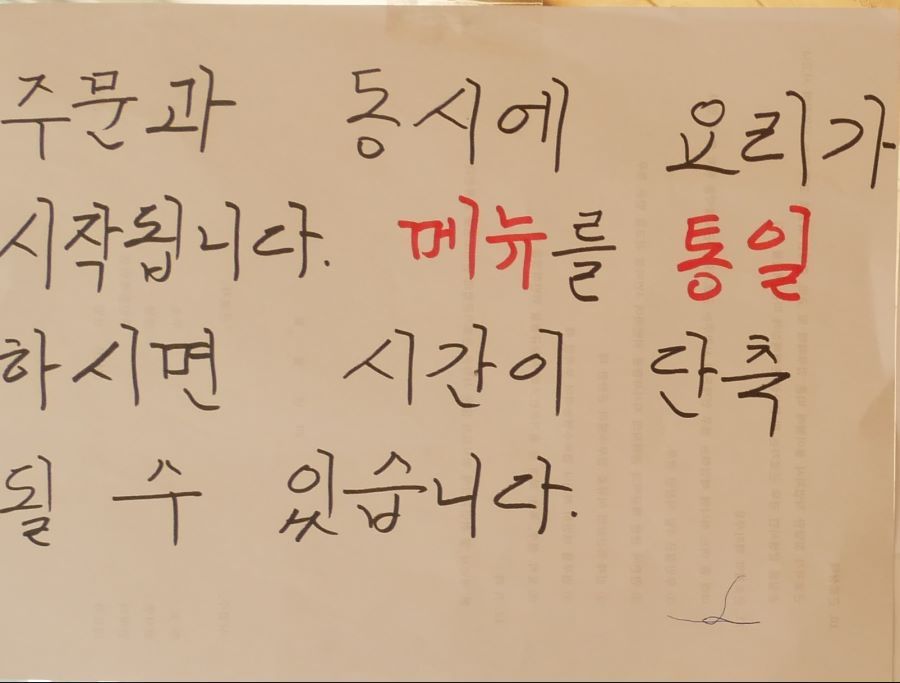 주문과 동시에 요리가
시작됩니다. 메뉴를 통일
하시면 시간이 단축
될 수 있습니다.